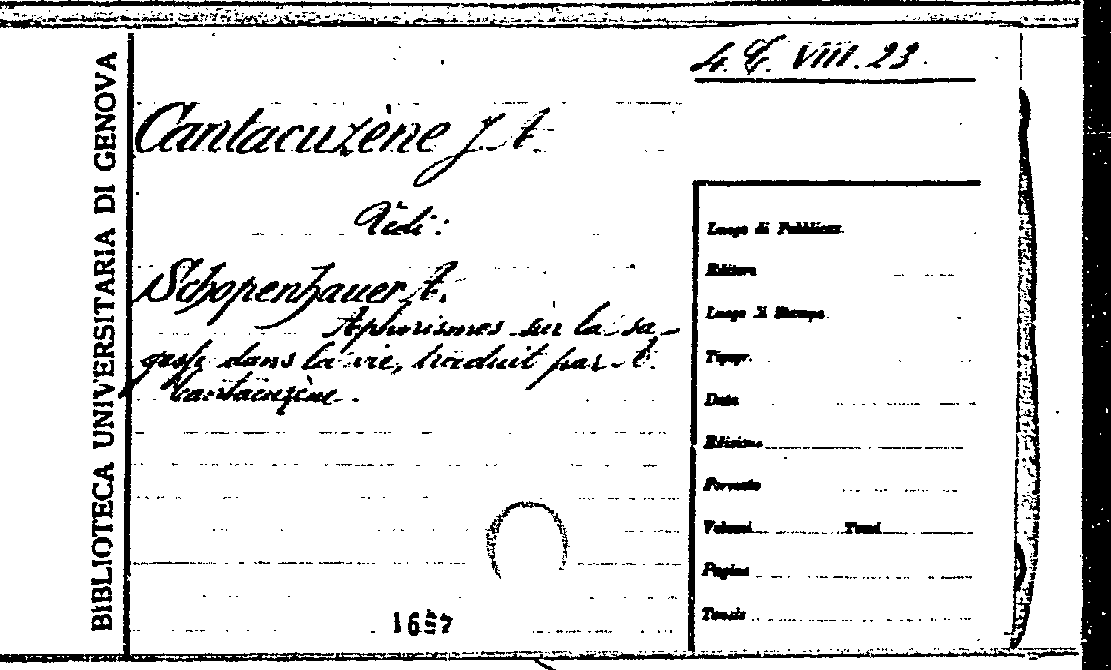 BIBLIOTECA UNIVERSITARIA DI GENOVA
4. C. VIII. 23.
Cantacuzène J. A.
Vedi:
Schopenhauer A.
Aphorismes sur la sa-
gesse dans la vie, traduit par A.
Cantacuzène.
Luogo di Pubblicaz.
Editore
Luogo di Stampa
Tipogr.
Data
Edizione
Formato
Volumi Tomi
Pagine
1697